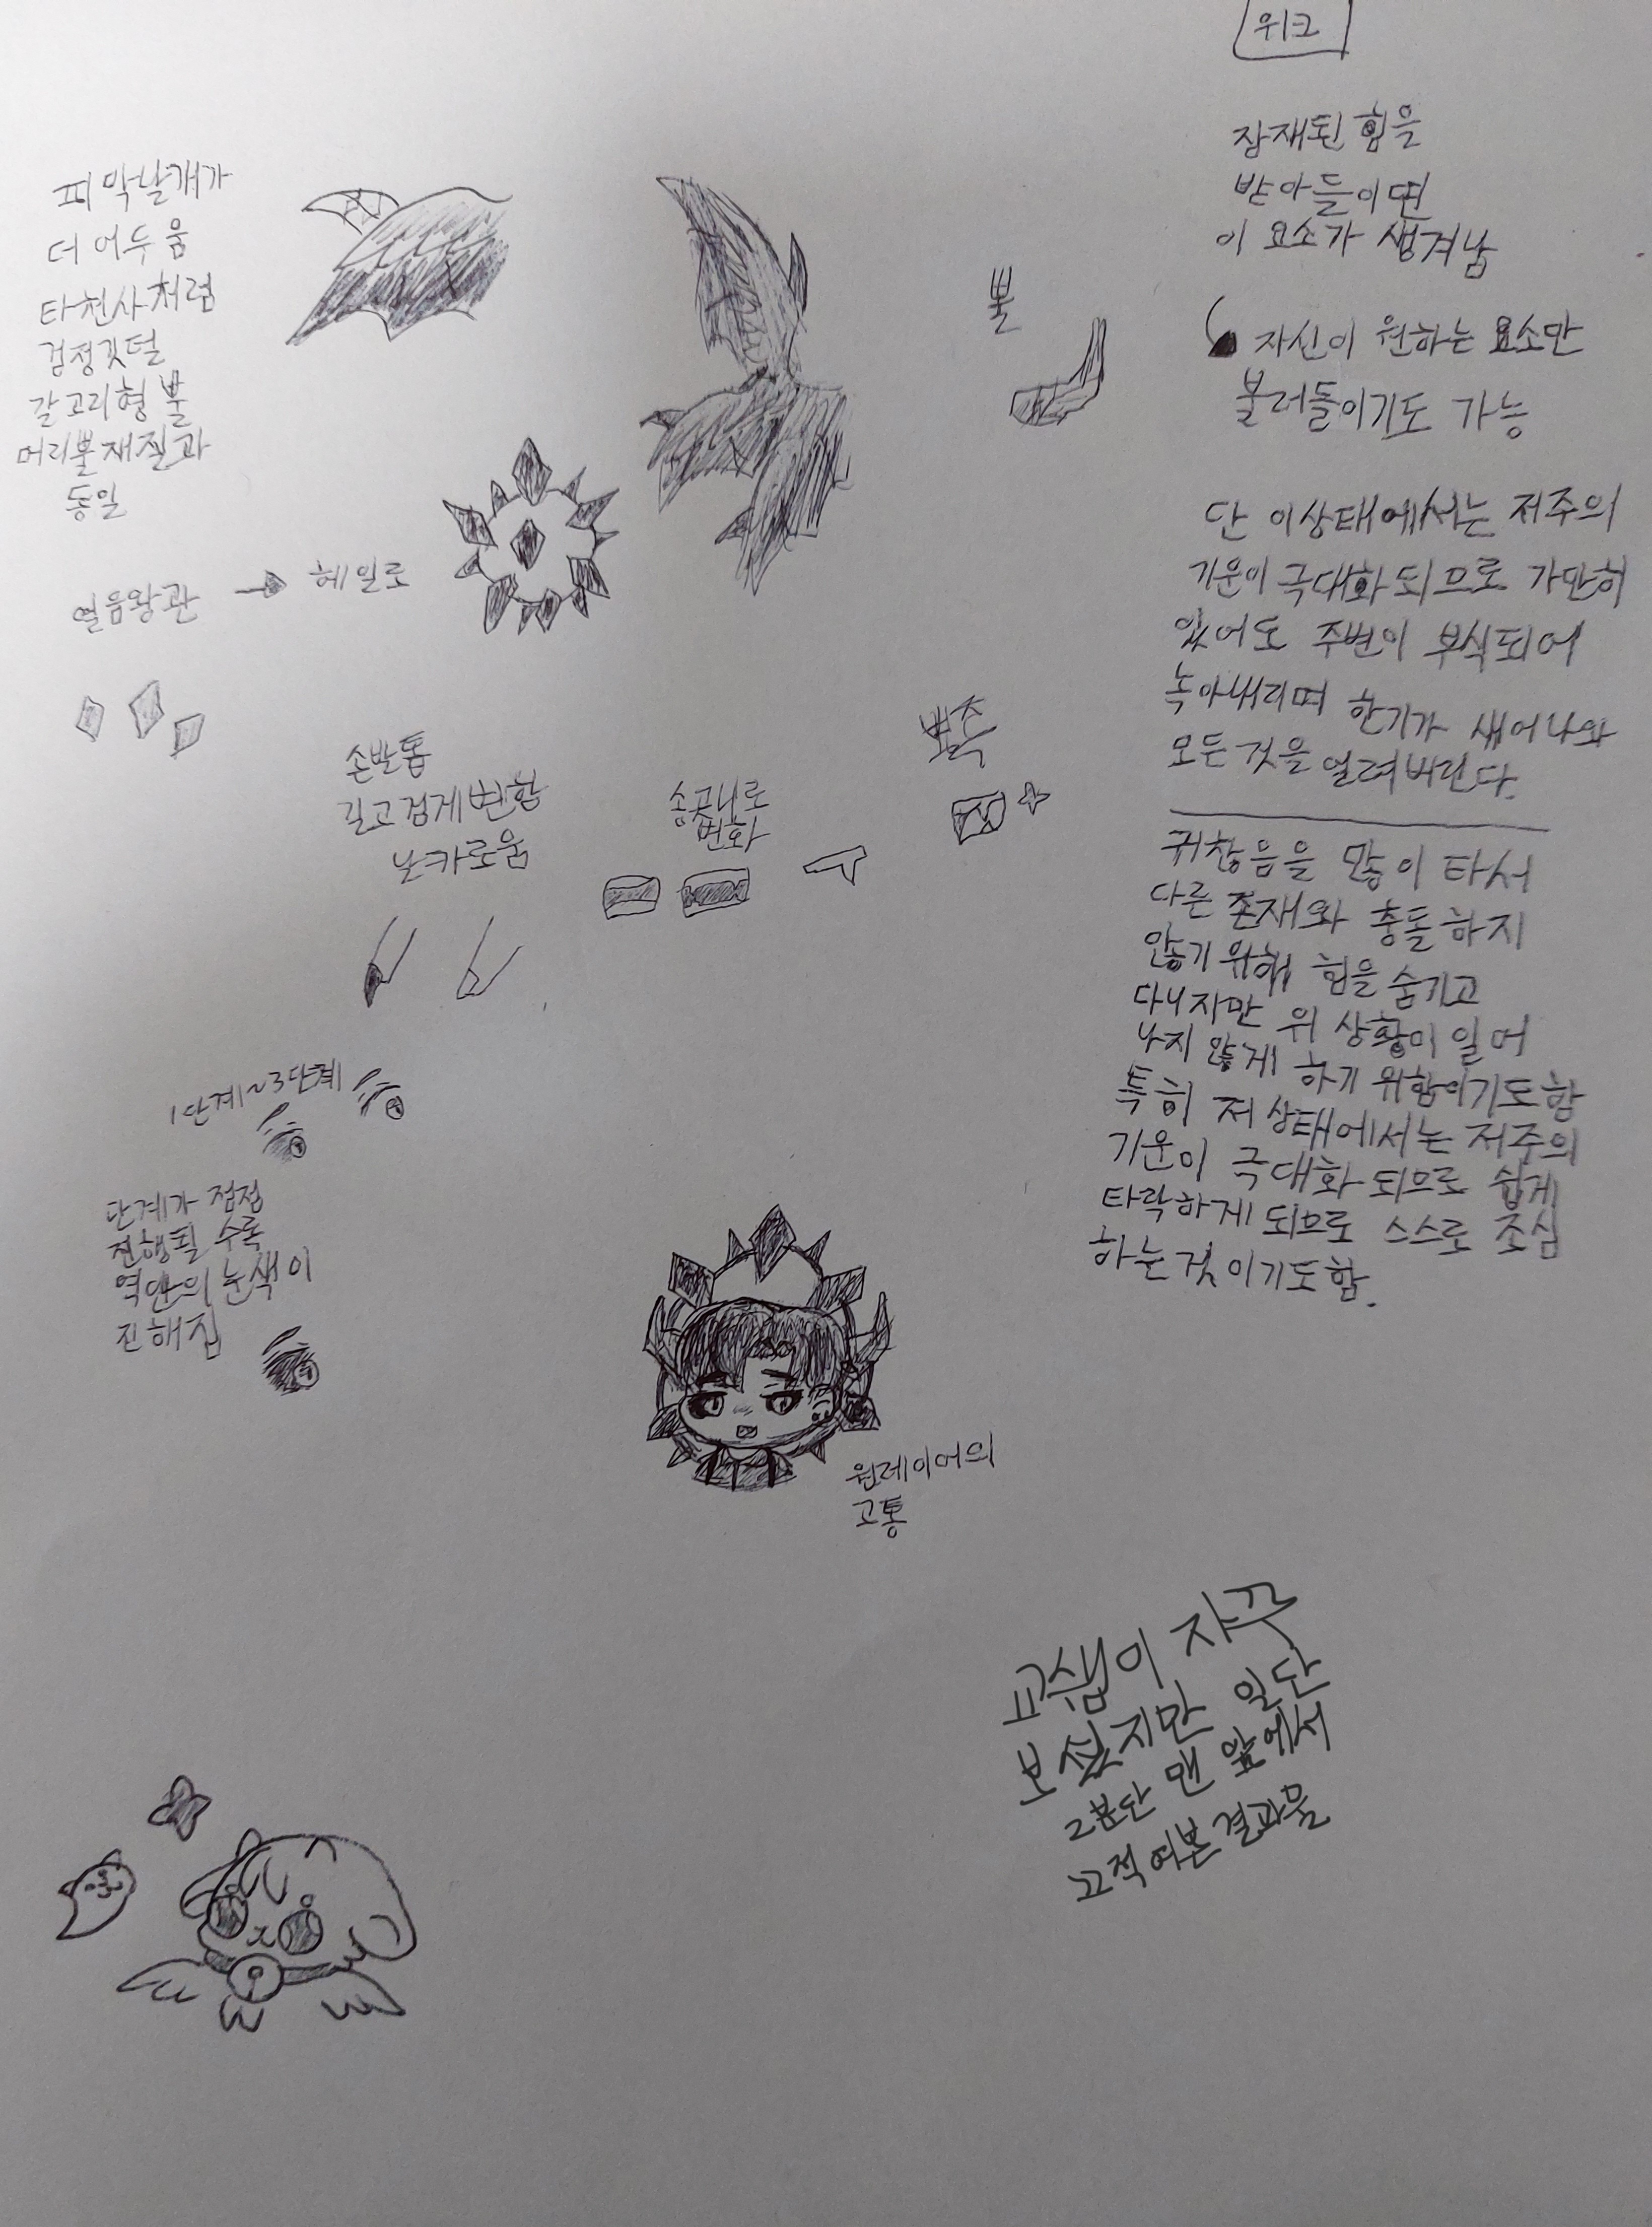 위크
잠재된 힘을
받아들이면
이 요소가 생겨남
자신이 원하는 요소만
불러들이기도 가능
단 이상태에서는 저주의
기운이 극대화 되므로 가만히
있어도 주변이 부식되어
녹아내리며 한기가 새어나와
모든것을 얼려버린다.
귀찮음을 많이 타서
다른 존재와 충돌하지
않기 위해 힘을 숨기고
다니지만 위 상황이 일어
나지 않게 하기 위함이기도함
특히 저 상태에서는 저주의
기운이 극대화 되므로 쉽게
타락하게 되므로 스스로 조심
하는것 이기도함.
피막날개가
더 어두움
타천사처럼
검정깃털
갈고리형 뿔
머리뿔재질과
동일
뿔
얼음왕관 → 헤일로
손발톱
길고 검게 변함
날카로움
송곳니로
변화
뾰족
1단계~3단계
단계가 점점
진행될 수록
역안의 눈색이
진해짐
원레이어의
고통
교생이 자꾸
보셨지만 일단
2분단 맨 앞에서
끄적여본 결과물